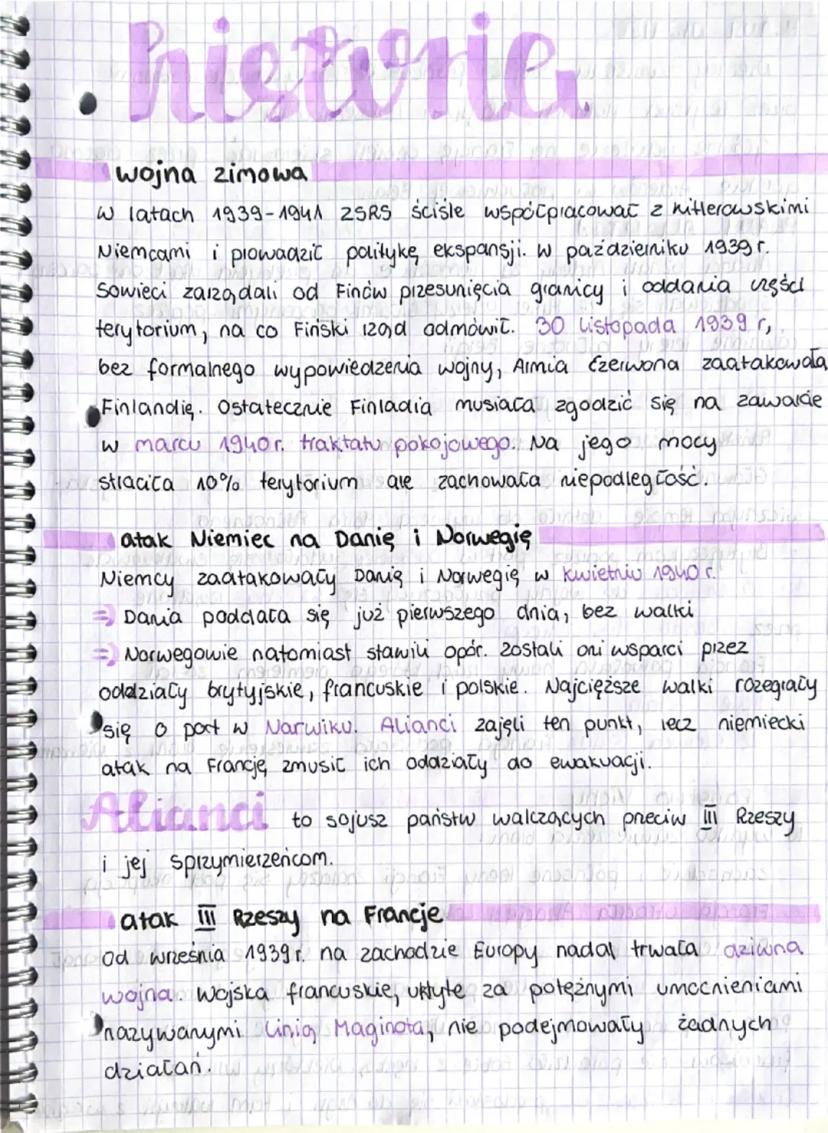 historia
wojna zimowa
W latach 1939-1941 ZSRS ściśle współpracował z hitlerowskimi
Niemcami i prowadził politykę ekspansji. W październiku 1939 r.
Sowieci zażądali od Finów przesunięcia granicy i oddania części
terytorium, na co Fiński rząd odmówił. 30 listopada 1939 r,
bez formalnego wypowiedzenia wojny, Armia Czerwona zaatakowała
Finlandię. Ostatecznie Finladia musiała zgodzić się na zawarcie
w marcu 1940r. traktatu pokojowego. Na jego mocy
straciła 10% terytorium ale zachowała niepodległość.
atak Niemiec na Danię i Norwegię
Niemcy zaatakowały Danię i Norwegię w kwietniu 1940 r.
⇒ Dania poddała się już pierwszego dnia, bez walki
⇒ Norwegowie natomiast stawili opór. Zostali oni wsparci przez
oddziały brytyjskie, francuskie i polskie. Najcięższe walki rozegrały
się o port w Narwiku. Alianci zajęli ten punkt, lecz niemiecki
atak na Francję zmusił ich oddziały do ewakuacji.
Alianci to sojusz państw walczących przeciw III Rzeszy
i jej sprzymierzeńcom.
atak III Rzeszy na Francje
Od września 1939r. na zachodzie Europy nadal trwała dziwna
wojna. Wojska francuskie, ukryte za potężnymi umocnieniami
nazywanymi Linią Maginota, nie podejmowały żadnych
działań.